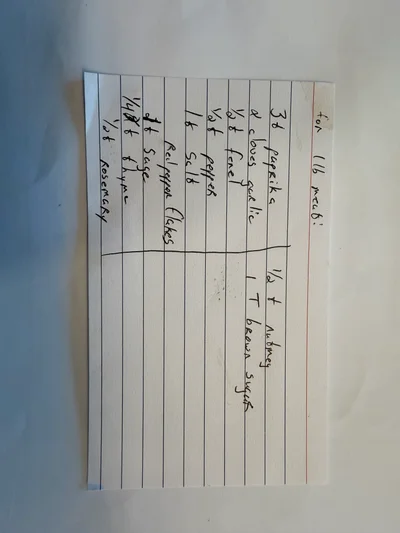 for 1 lb meat:
3t paprika
2 cloves garlic
1/2 t fenel
1/2 t pepper
1t salt
Red pepper flakes
1t sage
1/4 t thyme
1/2 t rosemary
1/2 t nutmeg
1 T brown sugar